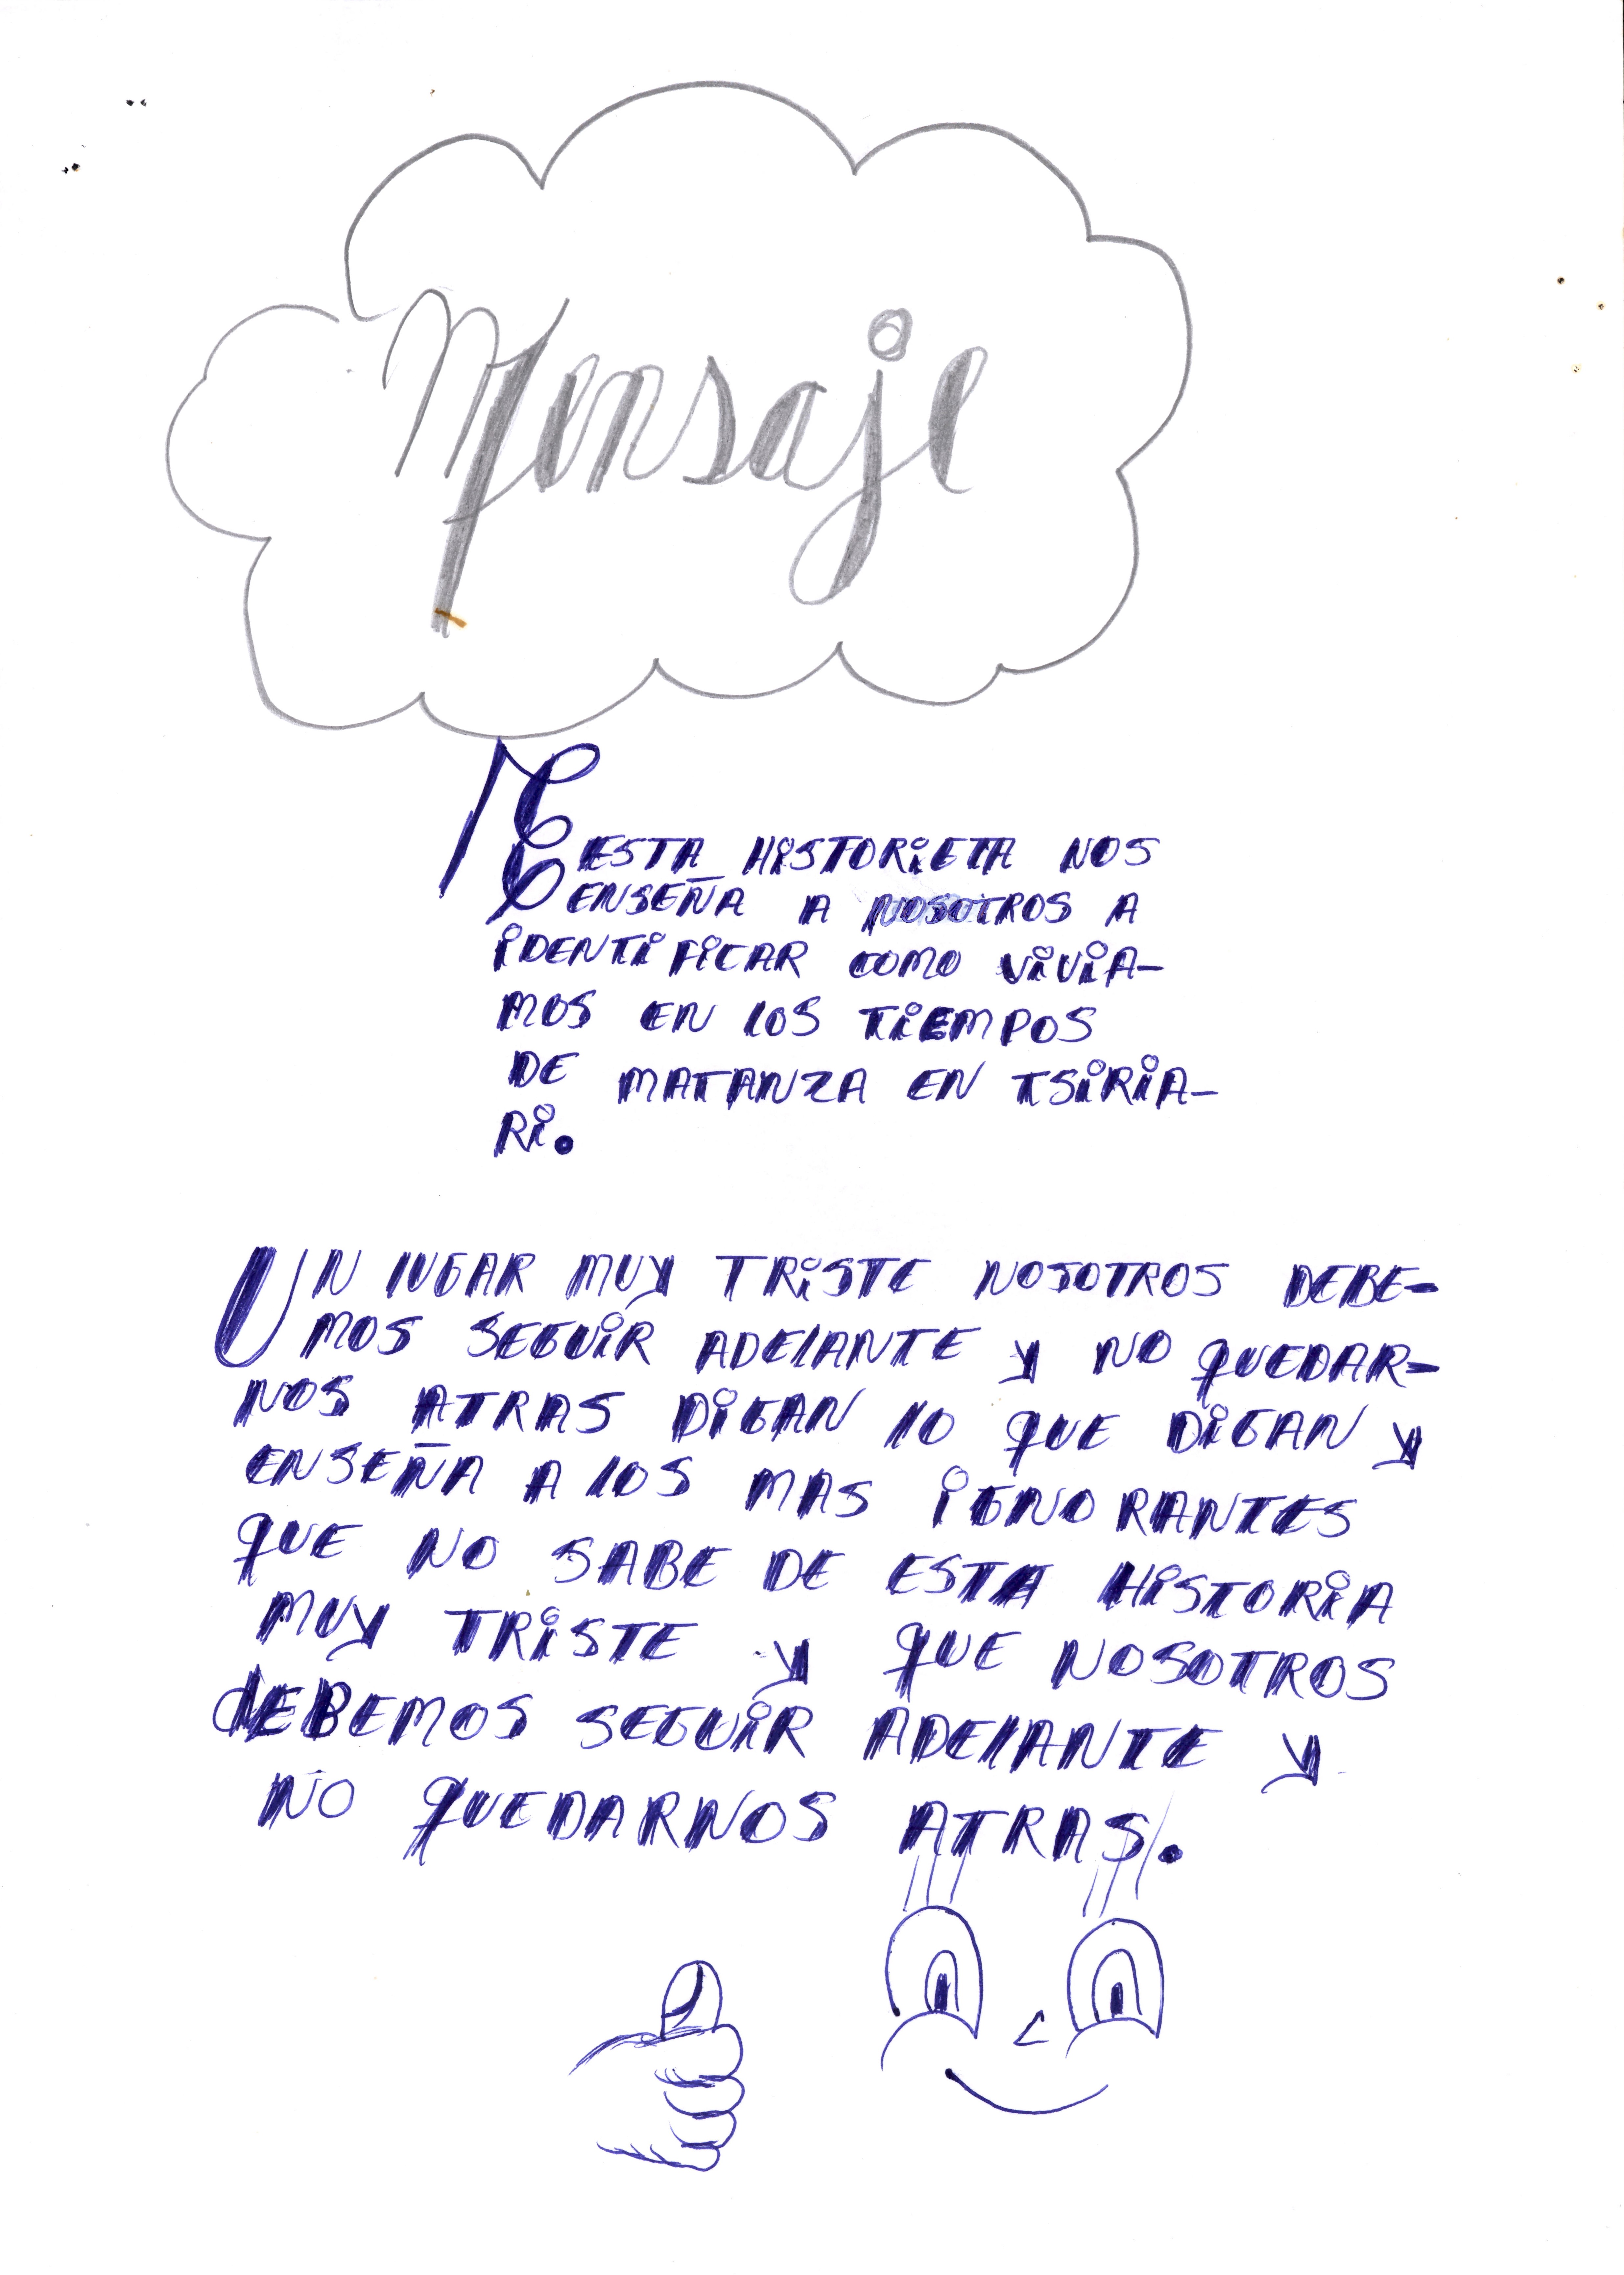 Mensaje
ESTA HISTORIETA NOS
ENSEÑA A NOSOTROS A
IDENTIFICAR COMO VIVIA-
MOS EN LOS TIEMPOS
DE MATANZA EN TSIRIA-
RI.
UN LUGAR MUY TRISTE NOSOTROS DEBE-
MOS SEGUIR ADELANTE Y NO QUEDAR-
NOS ATRAS DIGAN LO QUE DIGAN Y
ENSEÑA A LOS MAS IGNORANTES
QUE NO SABE DE ESTA HISTORIA
MUY TRISTE Y QUE NOSOTROS
DEBEMOS SEGUIR ADELANTE Y
NO QUEDARNOS ATRAS.